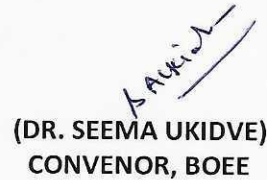 (DR. SEEMA UKIDVE)
CONVENOR, BOEE